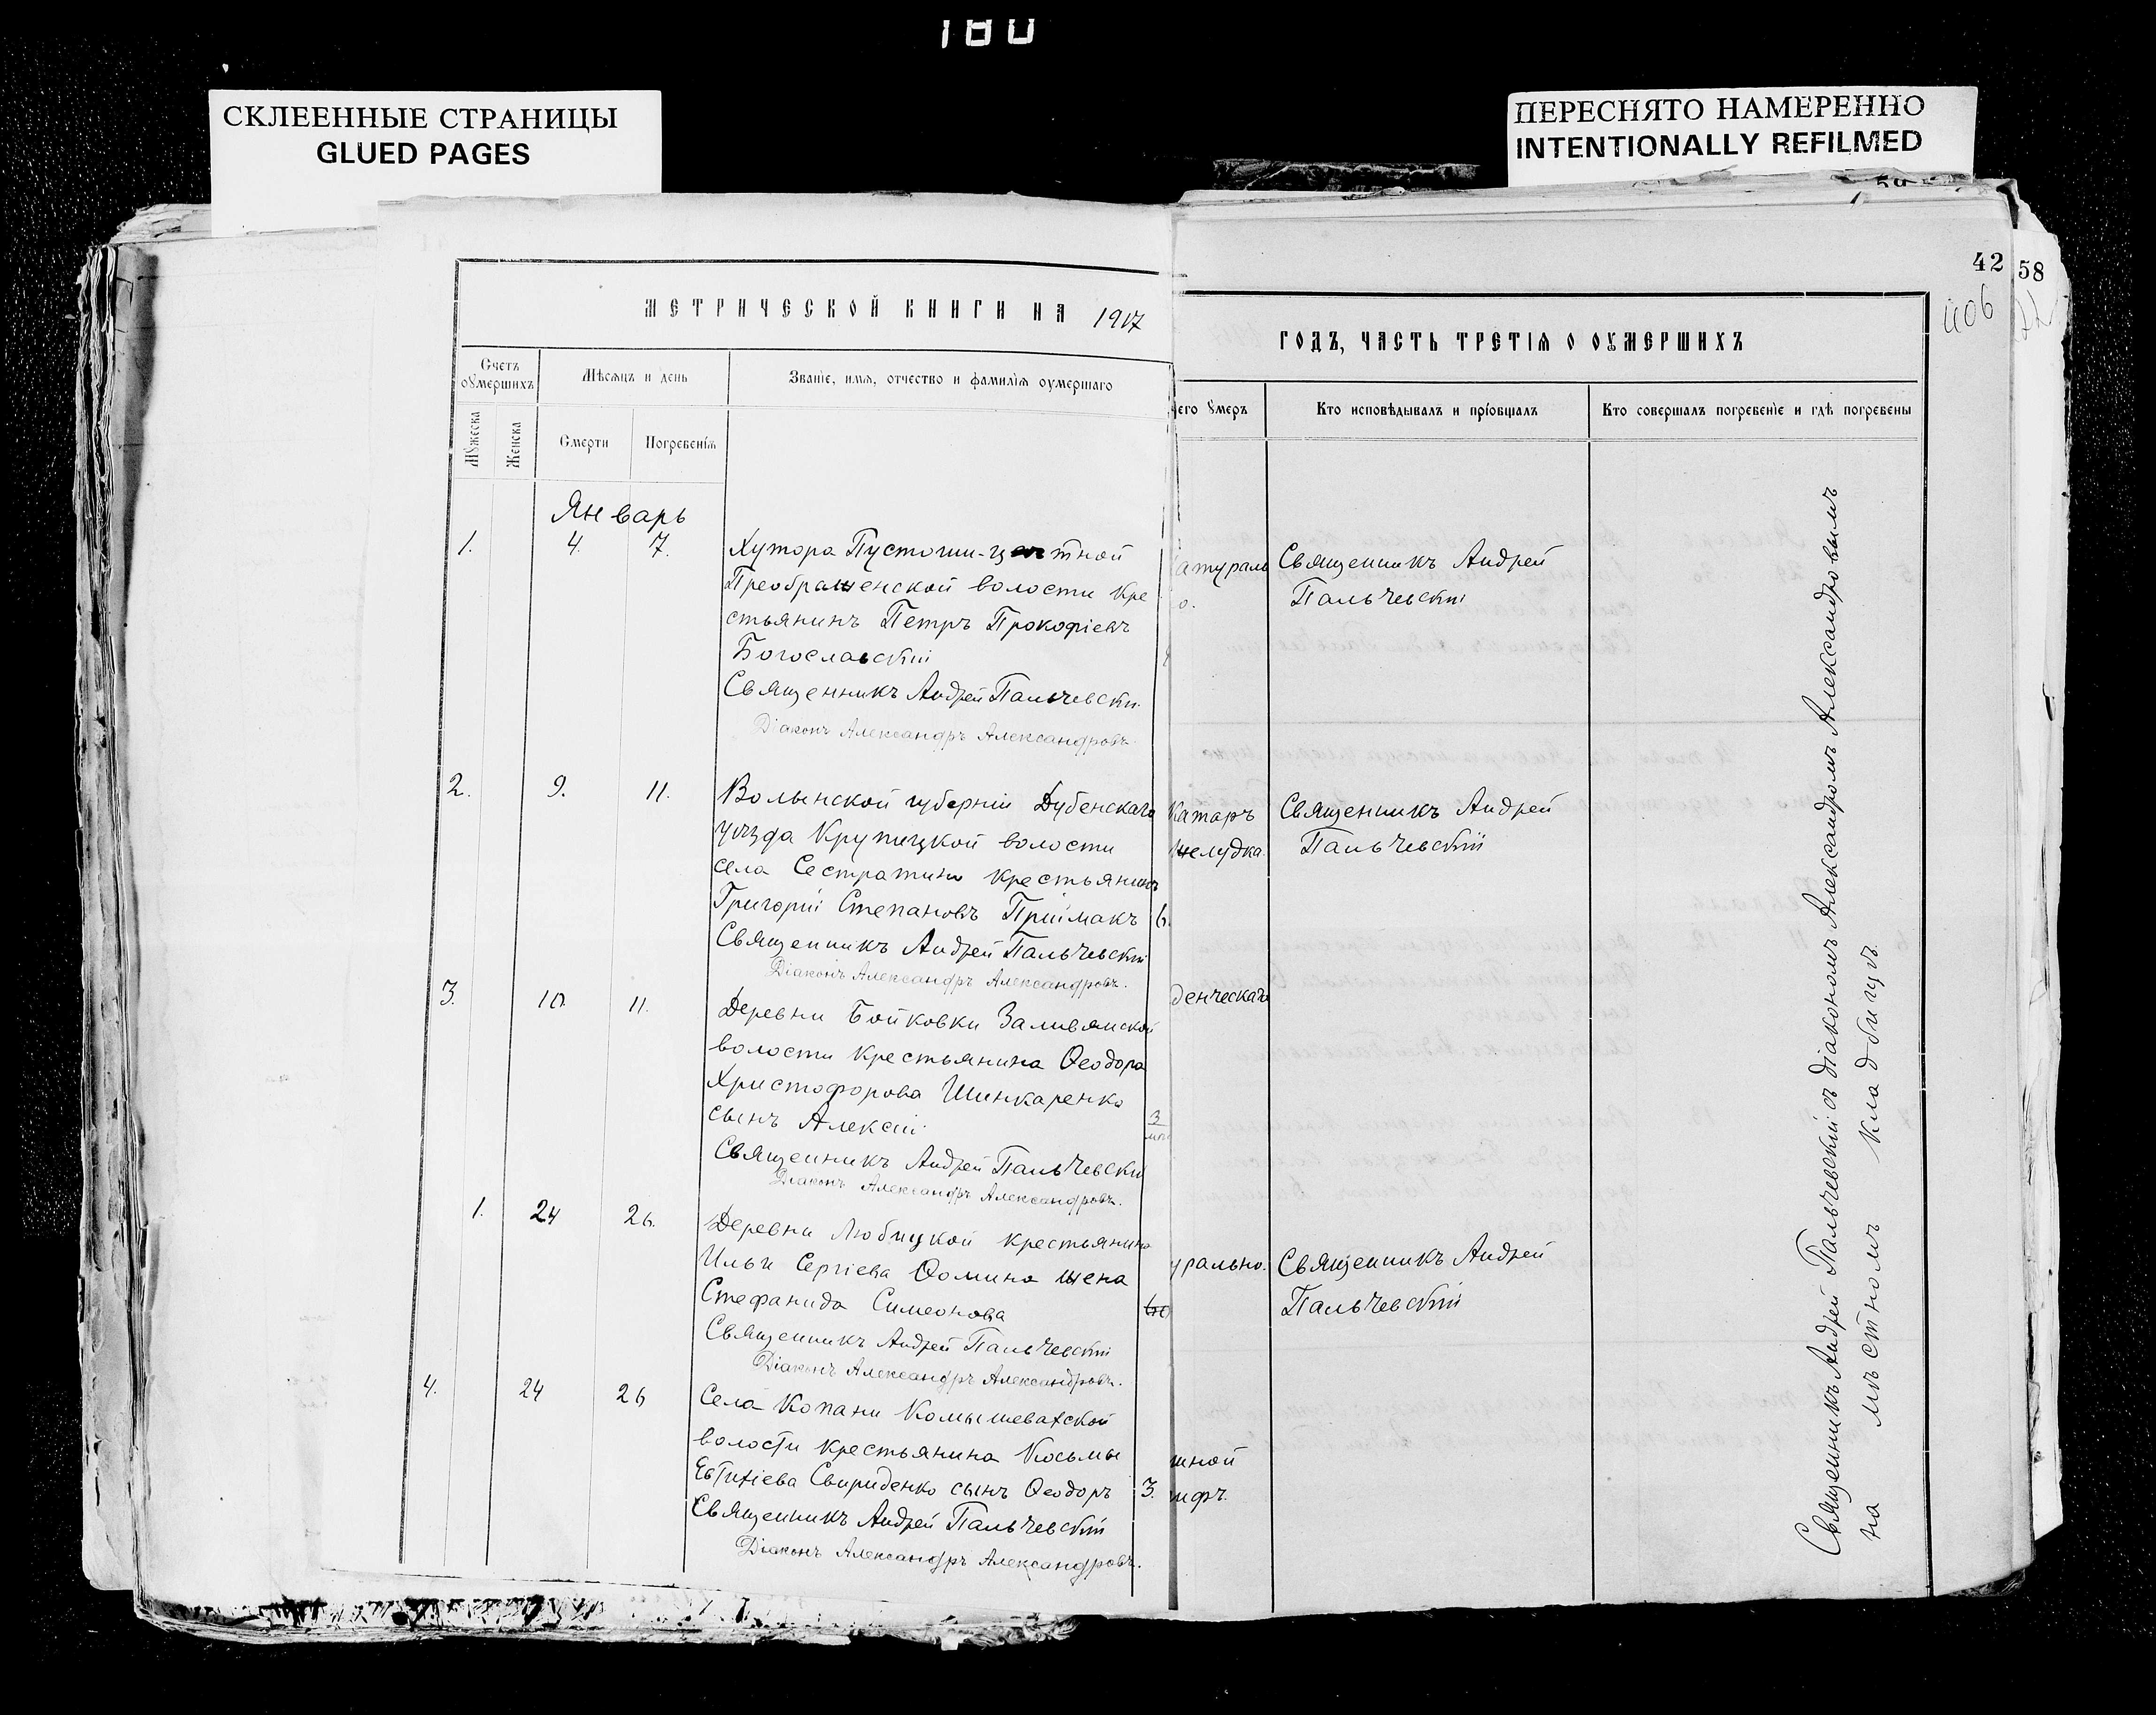 180
СКЛЕЕННЫЕ СТРАНИЦЫ
GLUED PAGES
ПЕРЕСНЯТО НАМЕРЕННО
INTENTIONALLY REFILMED
42
58
МЕТРИЧЕСКОЙ КНИГИ НА 1917
Счетъ оумершихъ
Мѣсяцъ и день
Званіе, имя, отчество и фамилія оумершаго
Мужеска
Женска
Смерти
Погребенія
Январь
1. 4. 7. Хутора
Преображенской волости кре
стьянинъ Петръ Прокофіевъ
Богославскій
Священникъ Андрей Пальчевскій
Діаконъ Александръ Александровъ
2. 9. 11. Волынской губерніи Дубенскаго
уѣзда Крупецкой волости
села Сестратина крестьянинъ
Григорій Степановъ Пріймакъ
Священникъ Андрей Пальчевскій
Діаконъ Александръ Александровъ.
3. 10. 11. Деревни Бойковки Заливянской
волости крестьянина Ѳеодора
Христофорова Шинкаренко
сынъ Алексій 3
Священникъ Андрей Пальчевскій
Діаконъ Александръ Александровъ.
1. 24 26. Деревни Любицкой крестьянина
Ильи Сергіева Ѳомина жена
Стефанида Симеонова
Священникъ Андрей Пальчевскій
Діаконъ Александръ Александровъ.
4. 24 26 Села Копани Комышеватской
волости крестьянина Косьмы
Евтихіева Свириденко сынъ Ѳеодоръ 3.
Священникъ Андрей Пальчевскій
Діаконъ Александръ Александровъ.
ГОДЪ, ЧАСТЬ ТРЕТІЯ О ОУМЕРШИХЪ
чего умеръ
Кто исповѣдывалъ и пріобщалъ
Кто совершалъ погребеніе и гдѣ погребены
атураль Священникъ Андрей
о. Пальчевскій
Катаръ Священникъ Андрей
желудка Пальчевскій
денческаго
урально. Священникъ Андрей
Пальчевскій
шной
ифъ.
Священникъ Андрей Пальчевскій съ діакономъ Александромъ Александровымъ
на мѣстномъ кладбищѣ.